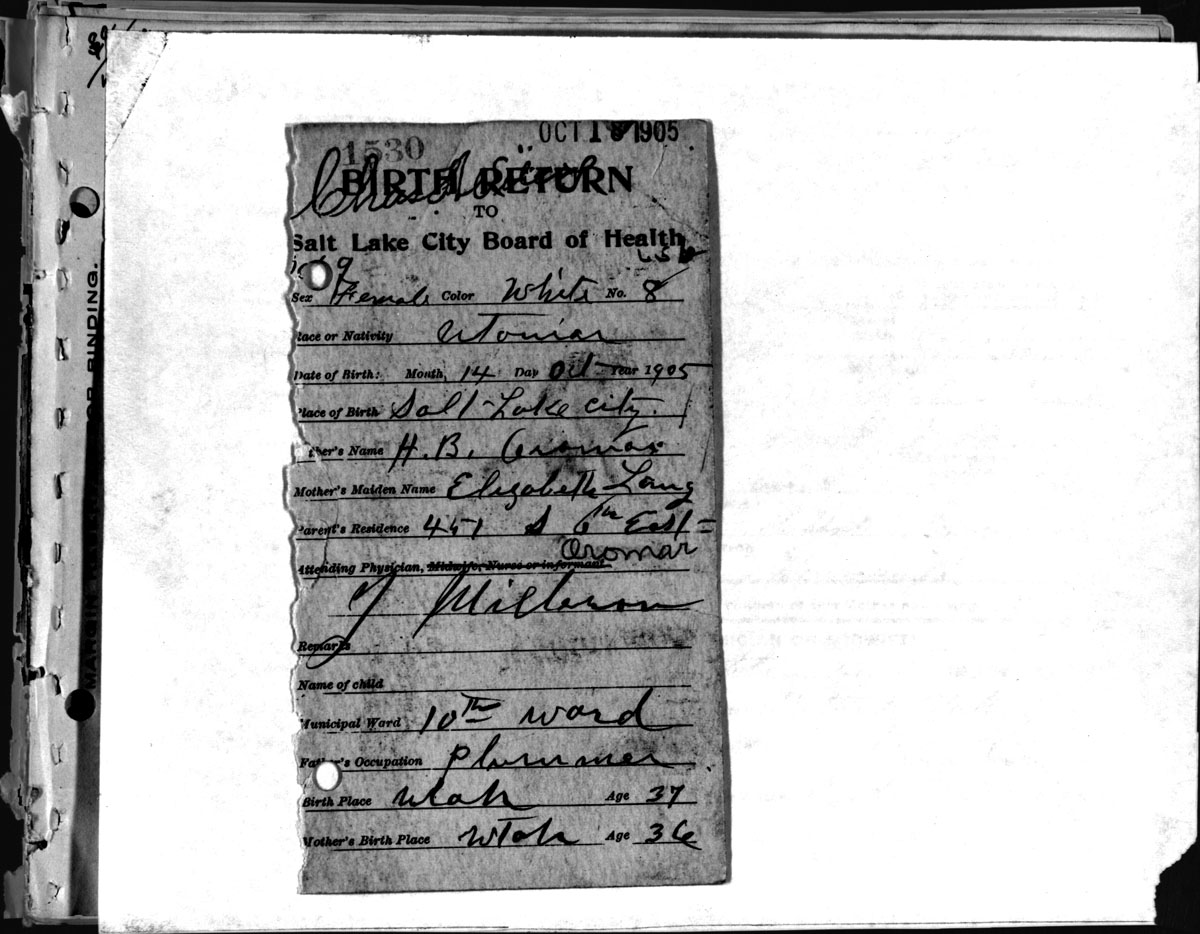 OCT 1 1905
1530
BIRTH RETURN
TO
Salt Lake City Board of Health
Sex Female Color White No. 8
lace or Nativity
Date of Birth: Month, 14 Day Oct Year 1905
lace of Birth Salt Lake City.
ther's Name H. B.
Mother's Maiden Name Elizabeth Lang
Parent's Residence 451 S 6th East
Cromar
Attending Physician, Midwife, Nurse or informant
Remarks
Name of child
Municipal Ward 10th Ward
Father's Occupation Plummer
Birth Place Utah Age 37
Mother's Birth Place Utah Age 36
OR BINDING.